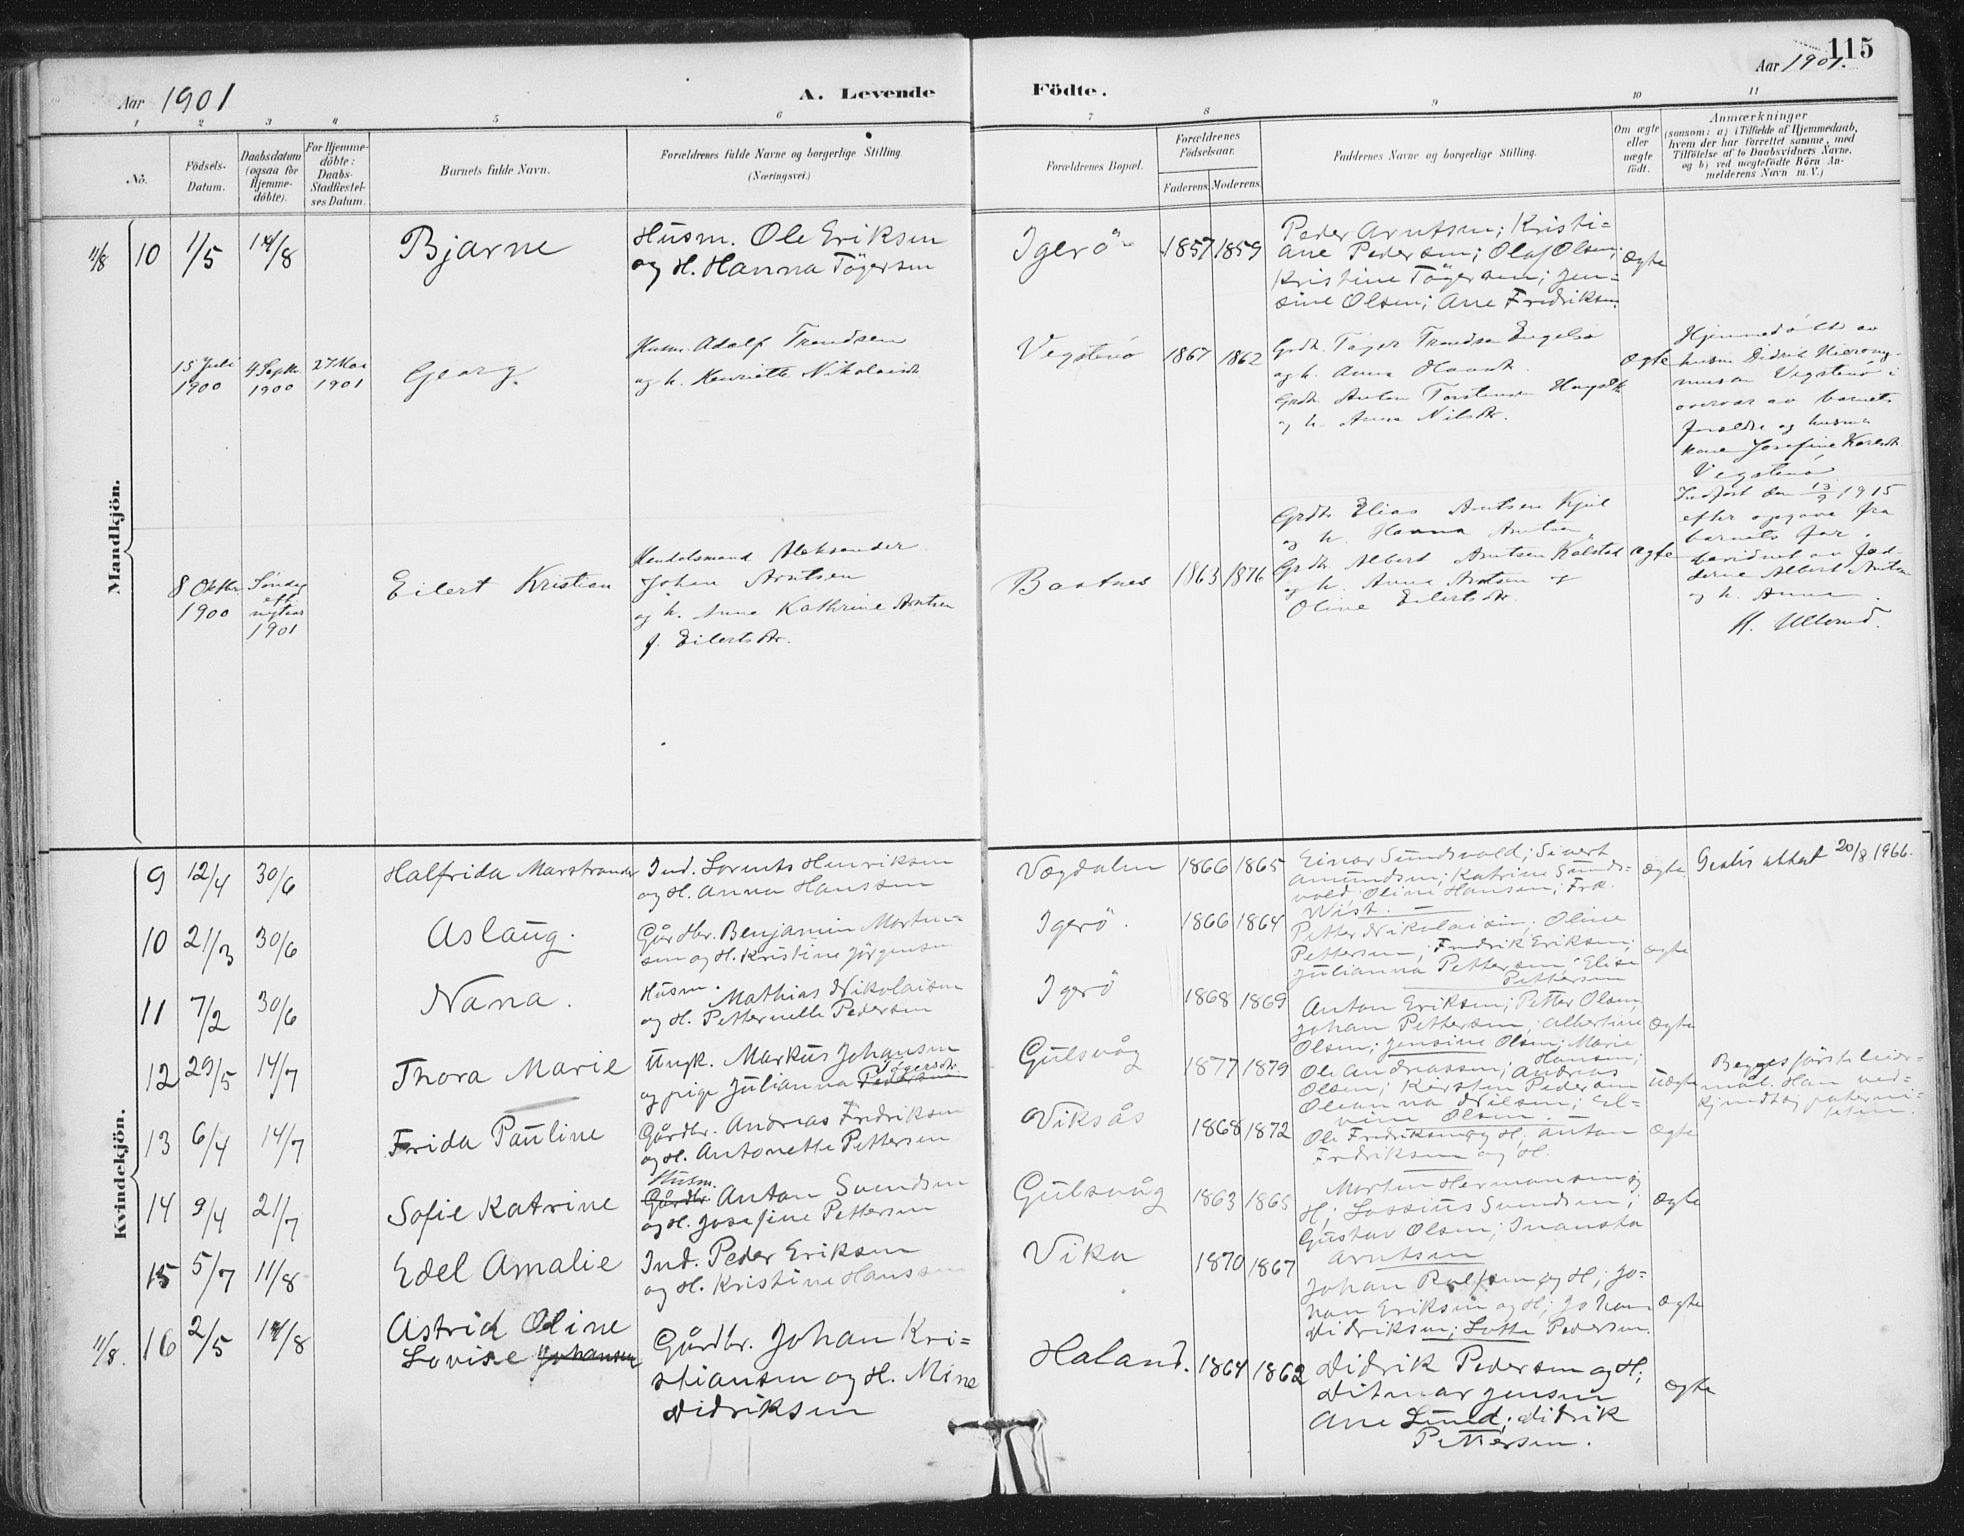 115
Aar 1901
A. Levende
Födte.
Aar 1901.
1 2 3 4 5 6 7 8 9 10 11
No.
Födsels-
Datum.
Daabsdatum
(ogsaa for
Hjemme-
döbte).
For Hjemme-
döbte:
Daabs-
Stadfæstel-
ses Datum.
Barnets fulde Navn.
Forældrenes fulde Navne og borgerlige Stilling.
(Næringsvei.)
Forældrenes Bopæl.
Forældrenes
Födselsaar.
Faderens.
Moderens.
Faddernes Navne og borgerlige Stilling.
Om ægte
eller
uægte
födt.
Anmærkninger
(saasom: a) i Tilfælde af Hjemmedaab,
hvem der har forrettet samme, med
Tilföielse af to Daabsvidners Navne,
og b) ved uægtefödte Börn An-
melderens Navn m. V.)
Mandkjön.
11/8 10 1/5 11/8 Bjarne
Husm. Ole Eriksen
og H. Hanna Tögersen
Igerö 1857 1859
Peder Arntsen; Kristi-
ane Pedersen; Olaf Olsen;
Kristine Tögersen; Jen-
sine Olsen; Ane Fredriksen.
Ægte
15 Juli
1900
9 Septb.
1900
27 Mai
1901
Georg.
Husm. Adolf Trondsen
og h. Henriette Nikolaisdt.
Vegstenö 1867 1862
Grdb. Töger Trondsen Engelsö
og h. Anna
Grdb. Anton Torstensen
og h. Anna Nilsdtr.
Ægte
Hjemmedöbt av
husm Didrik Hieröny-
musen Vegstenö i
overvær av barnets
forældre og husm.
kone Josefine Karlsdt.
Vegstenö
8 Oktbr
1900
Söndag
eft.
nytaar
1901
Eilert Kristian
Handelsmand Aleksander
Johan Arntsen
og h. Anna Kathrine Arntsen
f. Eilertsdtr.
Baatnes 1863 1876
Grdb. Elias Arntsen Kjul
og h. Hanna Arntsen
Grdb. Albert Arntsen Kalstad
og h. Anna Arntsen og
Oline Eilertsdtr.
Ægte
Indfört den 13/9 1915
efter opgave fra
barnets far,
bevidnet av fad-
derne Albert Arntsen
og h. Anna.
Kvindekjön.
9 12/4 30/6 Halfrida Marstrander
Ind. Lorents Henriksen
og H. Anna Hanssen
Vægdalen 1866 1865
Einar Sundsvold; Sivert
Amundsen; Katrine Sunds-
vold; Oline Hansen; Frk.
Wist.
Ægte
Gratis attest 20/8 1966.
10 21/3 30/6 Aslaug.
Gårdbr. Benjamin Morten-
sen og H. Kristine Jörgensen
Igerö. 1866 1864
Petter Nikolaisen; Oline
Pettersen; Fredrik Eriksen;
Julianna Pettersen; Elise
Pettersen
Ægte
11 7/2 30/6 Nana.
Husm. Mathias Nikolaisen
og H. Petternelle Pedersen
Igerö 1868 1869
Anton Eriksen; Petter Olsen;
Johan Pettersen; Albertine
Olsen; Jensine Olsen; Marie
Hansen;
Ægte
12 29/5 14/7 Thora Marie
Ungk. Markus Johansen
og pige Julianna Pedersen Tögersdtr.
Gulsvåg 1877 1879
Ole Andreassen; Andreas
Olsen; Kirsten Pedersen
Oleanna Nilsen; El-
vine Olsen
Uægte
Begges förste leier-
mål. Han ved-
kjendt sig paterni-
teten
13 6/4 14/7 Frida Pauline
Gårdbr. Andreas Fredriksen
og H. Antonette Pettersen
Viksås 1868 1872
Ole Fredriksen og H; Anton
Fredriksen og H.
Ægte
14 9/4 21/7 Sofie Katrine
Husm.
Gårdbr. Anton Svendsen
og H. Josefine Pettersen
Gulsvåg 1863 1865
Morten Hermansen og
H; Lossius Svendsen;
Gustav Olsen; Inanska
Arntsen
Ægte
15 5/7 11/8 Edel Amalie
Ind. Peder Eriksen
og H. Kristine Hanssen
Vika 1870 1867
Johan Rolfsen og H; Jo-
han Eriksen og H; Johan
Didriksen; Lotte Pedersen.
Ægte
11/8. 16 2/5 11/8 Astrid Oline
Lovise Johansen
Gårdbr. Johan Kri-
stiansen og H. Mine
Didriksen
Haland. 1864 1862
Didrik Pedersen og H;
Ditmar Jensen
Ane Lund; Didrik
Pettersen.
Ægte